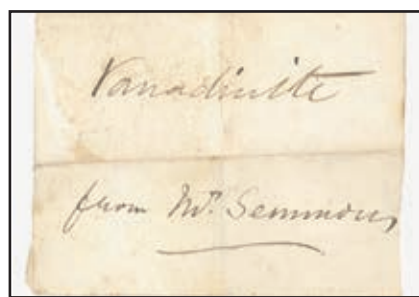 Vanadinite
from Mr. Semmons